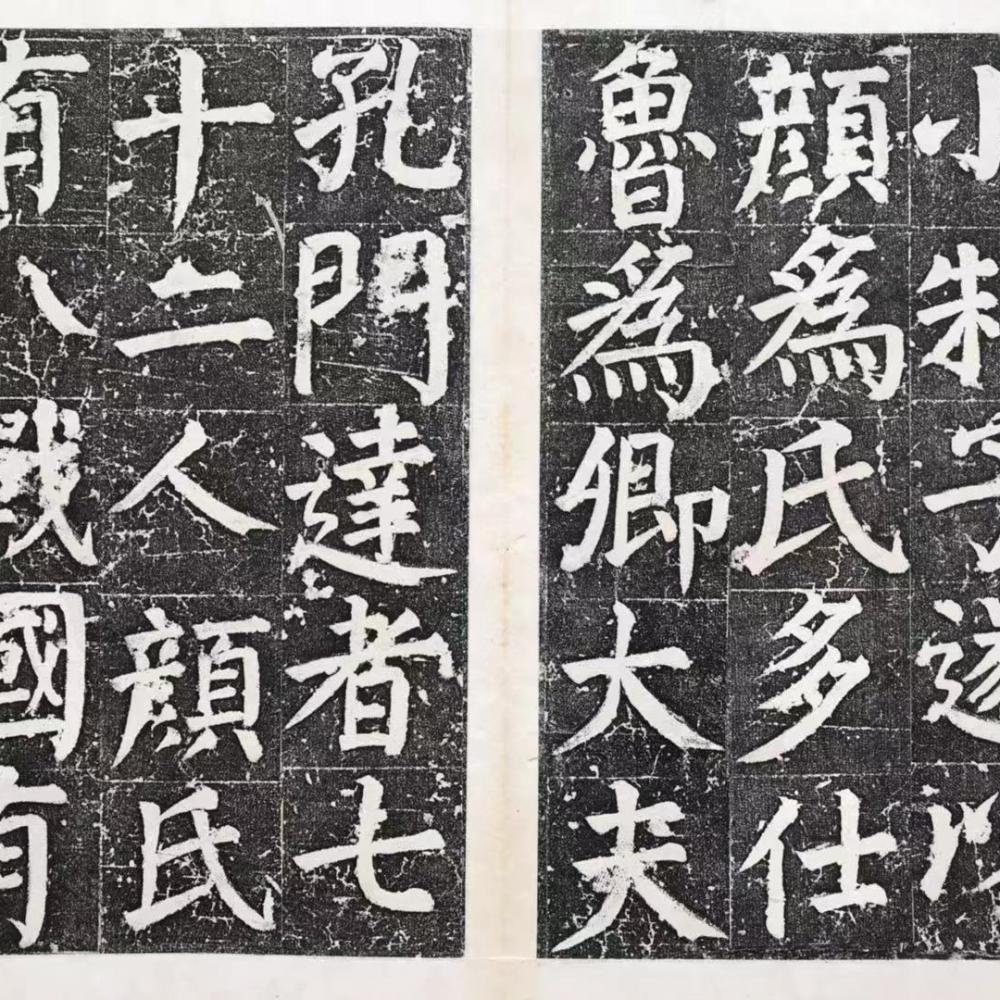 小邾子遂以
顏為氏多仕
魯為卿大夫
孔門達者七
十二人顏氏
有八戰國有